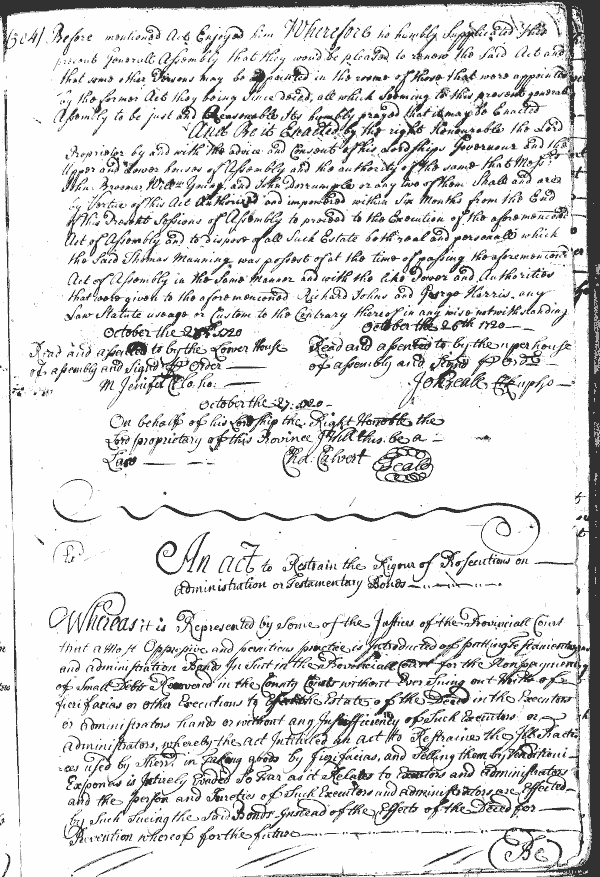 (564) Before mentioned Act Enjoyed him Wherefore he humbly Supplicated this
present Generall Assembly that they would be pleased to renew the Said Act and
that some other Persons may be appointed in the roome of those that were appointed
by the former Act they being Since dead, all which Seeming to this present generall
Assembly to be just and Reasonable Its humbly prayed that it may be Enacted
And Be it Enacted by the right Honourable the Lord
Proprietor by and with the advice and Consent of his Lordships Governour and the
Upper and Lower houses of Assembly and the authority of the same that Messrs
John Broome Wm Young, and John Dorrumple or any two of them Shall and are
by Vertue of this Act Authorized and impowered within Six Months from the End
of this Present Sessions of Assembly to proceed to the Execution of the aforementioned
Act of Assembly and to dispose of all Such Estate both real and personall which
the Said Thomas Manning was possest of at the time of passing the aforementioned
Act of Assembly in the Same Manner and with the like Power and Authorities
that were given to the aforementioned Richard Johns and George Harris any
Law Statute useage or Custom to the Contrary thereof in any wise notwithstanding
October the 1720
Read and assented to by the Lower House
of assembly and Signd p Order
M Jenifer Clo. ho:
October the 26th 1720
Read and assented to by the uper house
of assembly and Signd p Order
Jo Beale up ho
October the 27: 1720
On behalf of his Lordship the Right Honoble the
Lord proprietary of this Province I will this be a
Law
Cha. Calvert
Seale
An act to Restrain the Rigour of Prosecutions on
Administration or Testamentary Bonds
Whereas it is Represented by Some of the Justices of the Provinciall Court
that a Most Oppressive and pernitious practice is Introduced of putting Testamentary
and administration Bonds In Suit in the Provinciall Court for the Nonpayment
of Small Debts Recovered in the County Courts without Ever Suing out Writts of
fieri facias or other Executions to Effect the Estate of the Decd in the Executors
or administrators hands or without any Insufficiency of Such Executors or
administrators, whereby the act Intituled an act to Restraine the Ill Practi
ces used by Sherrs in Taking goods by fieri facias, and Selling them by Venditioni
Exponas is Intirely Evaded So far as it Relates to Executors and administrators
and the person and Sureties of Such Executors and administrators are Effected
by Such Sueing the Said Bonds Instead of the Effects of the Decd for
Prevention whereof for the future
Be